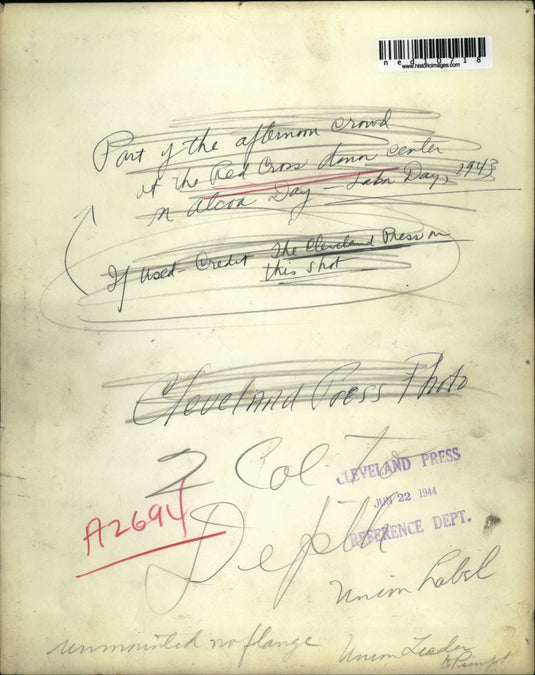 ned10718
www.historicimages.com
Part of the afternoon crowd
at the Red Cross donor center
on Alcoa Day - Labor Day, 1943
If used - Credit The Cleveland Press on
this shot
Cleveland Press Photo
2 Col. to
Depth
A2694
CLEVELAND PRESS
JUN 22 1944
REFERENCE DEPT.
Union Label
unmounted no flange
Union Leader